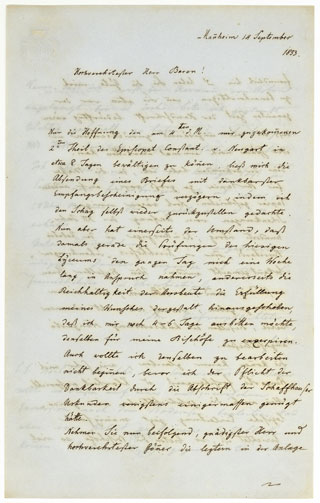 Mañheim 14 September
1853.
Hochverehrtester Herr Baron!
Nur die Hoffnung, den am 4ten d. M. mir zugekom̃enen
2ten Theil des Episcopat. Constant. v. Neugart in
etwa 8 Tagen bewältigen zu köñen ließ mich die
Absendung eines Briefes mit dankbarster
Empfangsbescheinigung verzögern, indem ich
den Schatz selbst wieder zurückzustellen gedachte.
Nun aber hat einerseits der Umstand, daß
damals gerade die Prüfungen des hiesigen
Lyceums den ganzen Tag mich eine Woche
lang in Anspruch nahmen, andererseits die
Reichhaltigkeit der Ausbeute die Erfüllung
meines Wunsches dergestalt hinausgeschoben,
daß ich mir noch 4-6 Tage ausbitten möchte,
denselben für meine Bischöfe zu excerpiren.
Auch wollte ich denselben zu bearbeiten
nicht begiñen, bevor ich der Pflicht der
Dankbarkeit durch die Abschrift der Schaffhauser
Urkunden wenigstens einigermassen genügt
hätte.
Nehmen Sie nun beifolgend, gnädigster Herr und
hochverehrtester Göñer die letztern in der Anlage